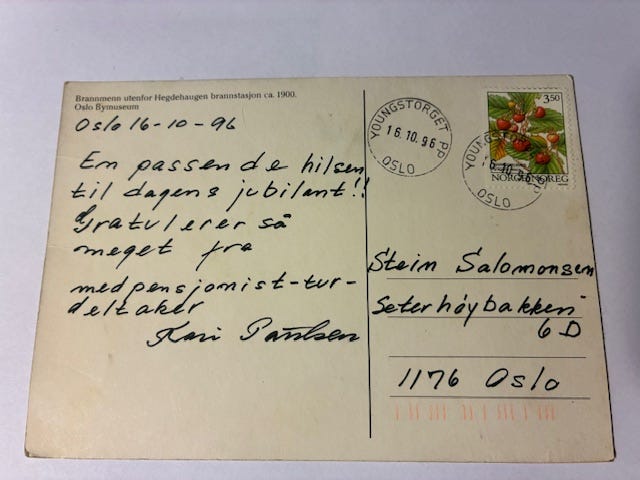 Brannmenn utenfor Hegdehaugen brannstasjon ca. 1900.
Oslo Bymuseum
Oslo 16-10-96
En passende hilsen
til dagens jubilant!!
Gratulerer så
meget fra
medpensjonist-tur-
deltaker
Kari Paulsen
YOUNGSTORGET P.P
16.10.96
OSLO
3,50
NORGE NOREG
YOUNGSTORGET P.P
16.10.96
OSLO
Stein Salomonsen
Seterhøybakken
6 D
1176 Oslo